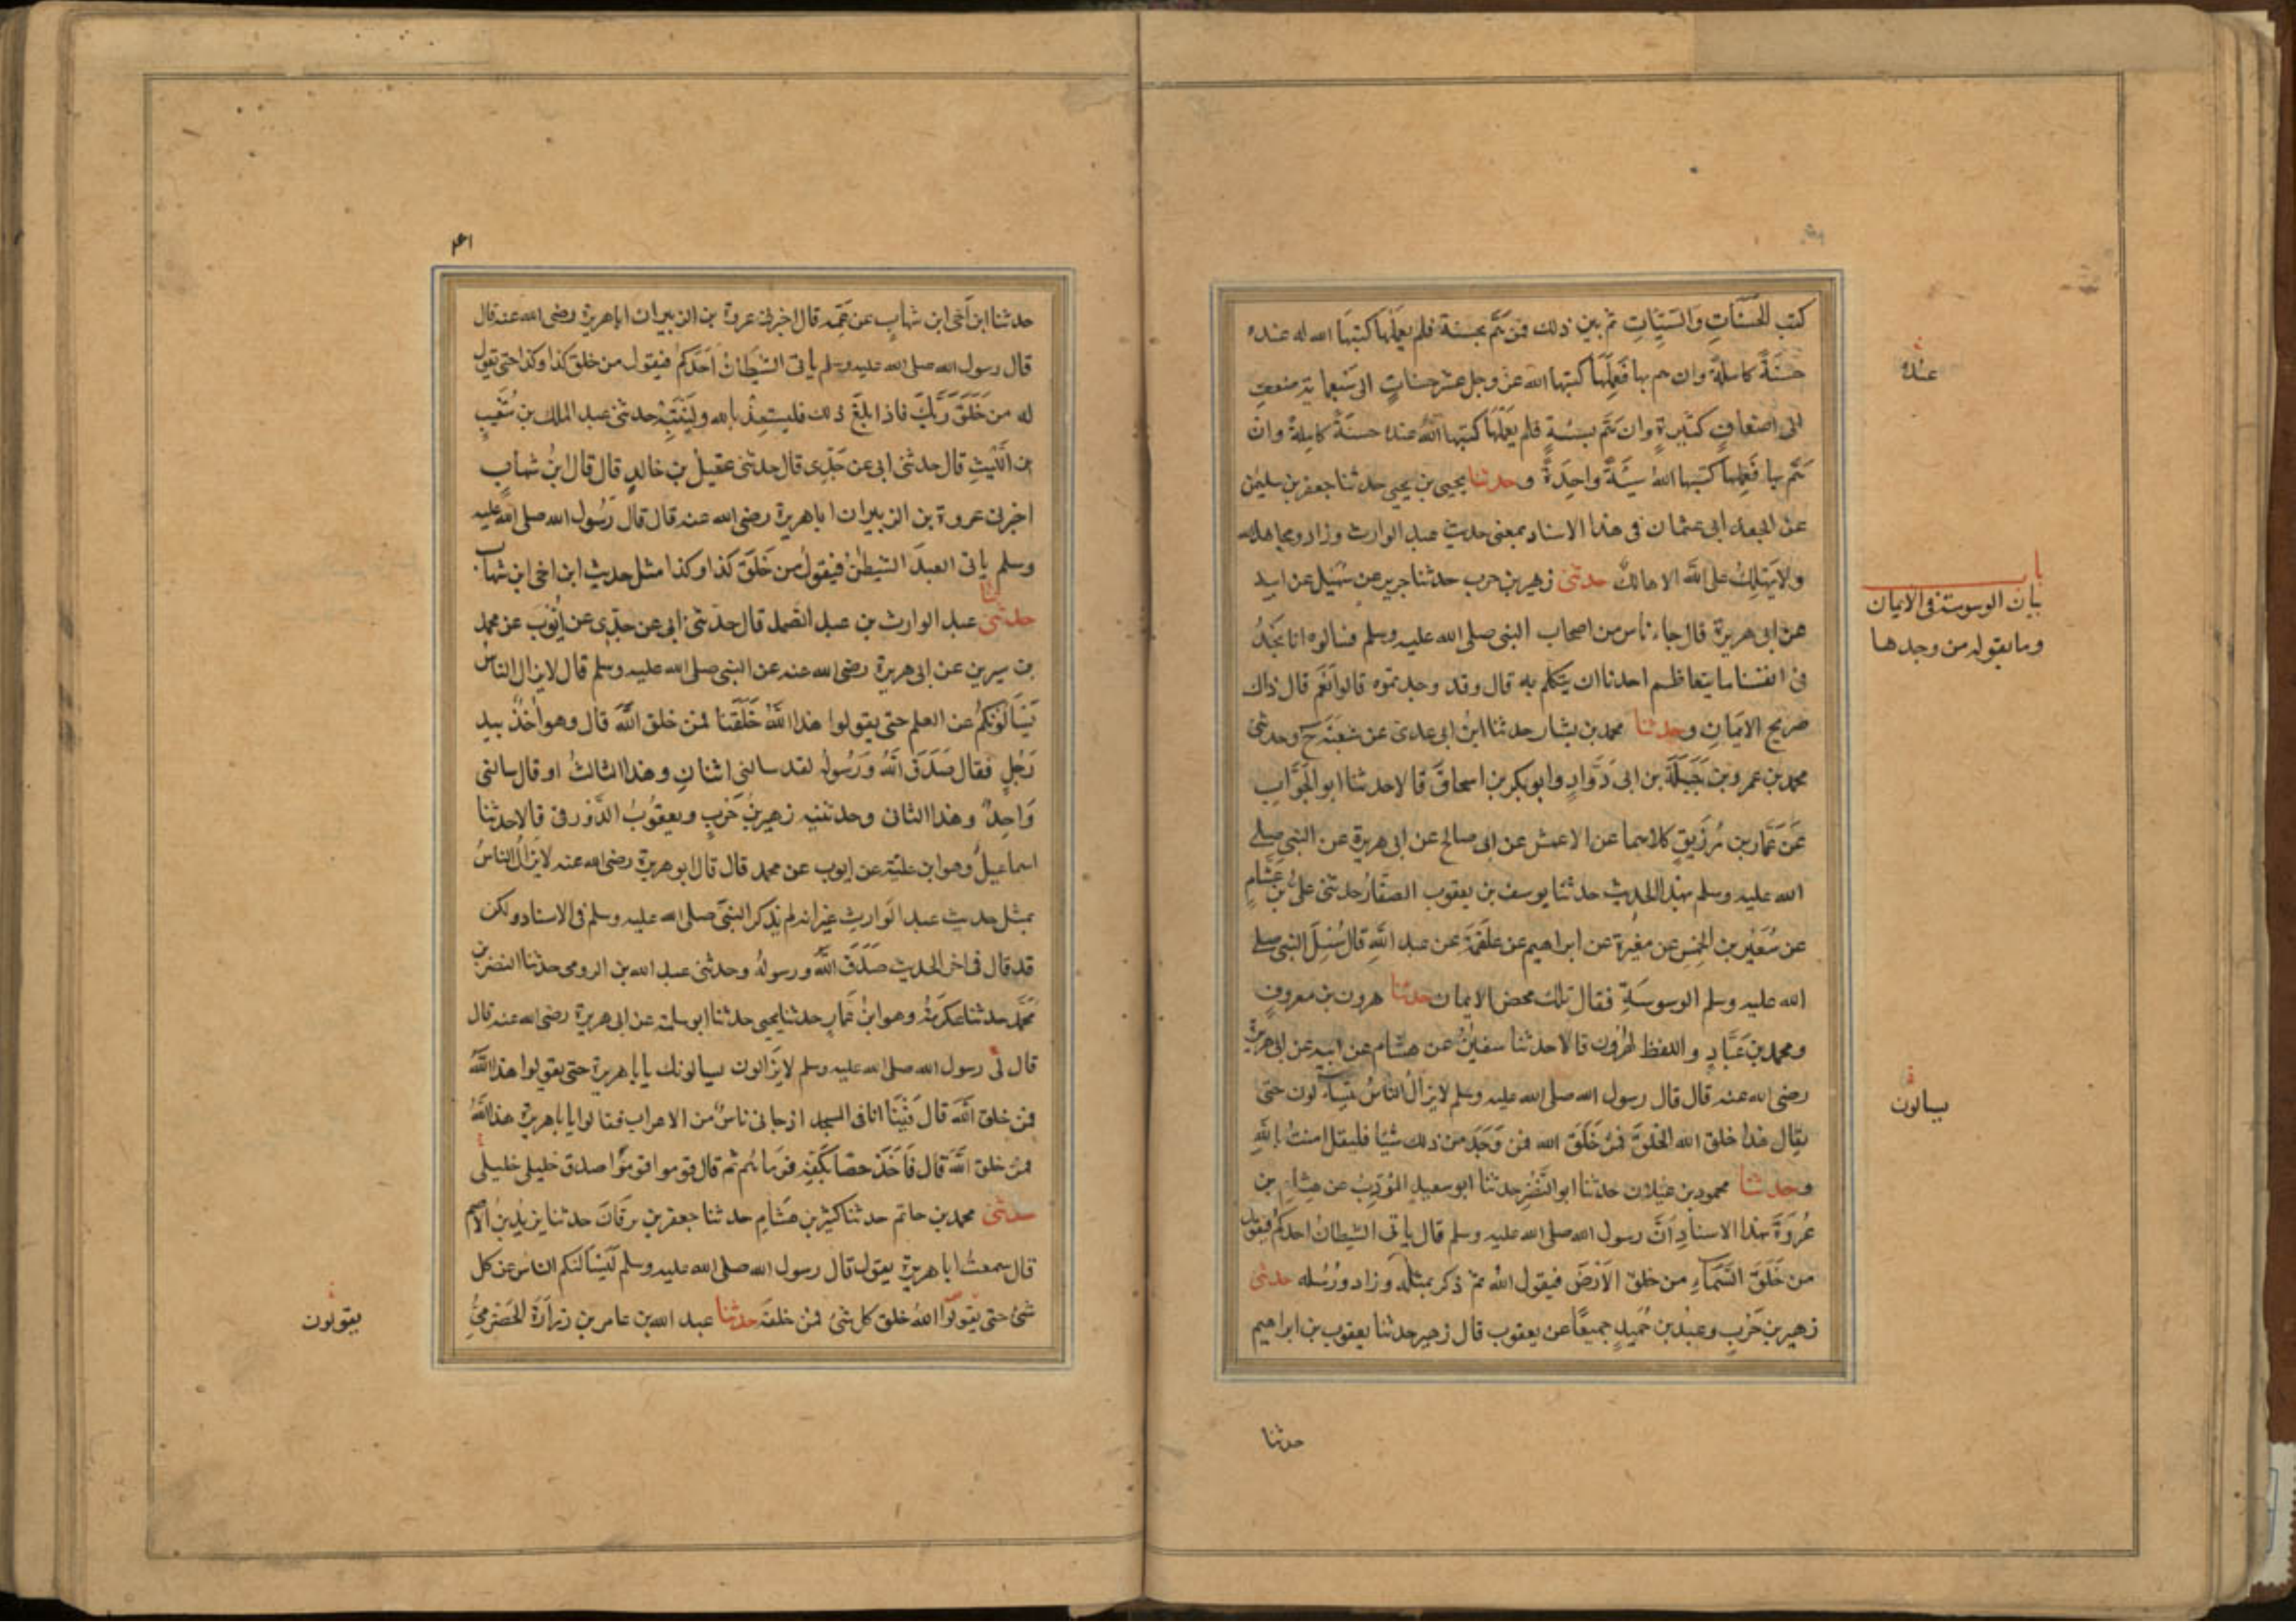 كتب الحَسَنَاتِ وَالسَيِّئَاتِ ثم بين ذلك فمن هَمَّ بحسنة فلم يعمَلْهَا كتبَهَا الله له عنده
حسَنَةً كاملةً وان هم بها فَعمِلَهَا كتبها الله عز وجل عشر حسناتٍ الى سَبعماية ضعفٍ
الى اضعافٍ كثيرةٍ وان هَمَّ بسيئةٍ فلم يَعْمَلْهَا كتبها اللهُ عنده حسنَةً كاملةً وان
هَمَّ بها فَعِمِلَهَا كتبها اللهُ سيئَةً واحِدَةً وحدثنا يحيى بن يحيى حدثنا جعفر بن سليمن
عن الجعد ابى عثمان فى هذا الاسناد بمعنى حديث عبد الوارث وزاد ومحاها الله
ولا يَهْلِكُ على اللّه الا هالكٌ حدثنى زهير بن حرب حدثنا جرير عن سُهَيْل عن ابيه
عن ابى هريرة قال جاء ناس من اصحاب النبى صلى الله عليه وسلم فسالوه انا نجَدُ
فى انفسنا ما يتعاظم احدنا ان يتكلم به قال وقد وجدتموه قالوا نَعَم قال ذاك
صريح الايمَانِ وحدثنا محمد بن بشار حدثنا ابنُ ابى عدى عن شعبَةَ ح وحدثنى
محمد بن عمرو بن جَبَلَةَ بن ابى رَوَّادٍ وابو بكر بن اسحاقَ قالا حدثنا ابو الجَوَّابِ
عَن عَمّار بن رُزَيقٍ كلاهما عن الاعمش عن ابى صالح عن ابى هريرة عن النبى صلى
الله عليه وسلم بهذا الحديث حدثنا يوسف بن يعقوب الصفّارُ حدثنى علىُّ بن عَثّامٍ
عن سُعَيْرِ بن الخِمْسِ عن مغيرة عن ابراهيم عن علقَمَةَ عن عبد اللّهِ قال سُئِلَ النبى صلى
الله عليه وسلم الوسوسَةِ فقال تلك محض الايمان حدثنا هرون بن معروفٍ
ومحمد بن عَبَّادٍ واللفظ لهرون قالا حدثنا سفيٰنُ عن هشام عن ابيه عن ابى هريرة
رضى الله عنه قال قال رسول الله صلى الله عليه وسلم لا يزالُ الناسُ يتسآءلون حتى
يقال هذا خلق الله الخلقَ فمن خَلَقَ الله فمن وَجَدَ من ذلك شيًا فليقل امنتُ باللهِ
وحدثنا محمود بن غيلان حدثنا ابو النَّضْرِ حدثنا ابو سعيدٍ المُؤَدِّبُ عن هشام بن
عُروَةَ بهذا الاسنادِ اَنَّ رسول الله صلى الله عليه وسلم قال ياتى الشيطانُ احدكم فيقول
من خَلَقَ السَّمَآءَ من خلق الاَرْضَ فيقول اللهُ ثم ذكر بمثله وزاد ورُسُله حدثنى
زهير بن حَربٍ وعبدُ بن حُمَيدٍ جميعًا عن يعقوب قال زهير حدثنا يعقوب بن ابراهيم
حدثنا
عنده
باب
بيان الوسوسة فى الايمان
وما يقوله من وجدها
يسالون
٤١
حدثنا ابن اَخى ابن شهابٍ عن عَمِّه قال اخبرنى عروة بن الزبير ان اباهريرة رضى الله عنه قال
قال رسول الله صلى الله عليه وسلم ياتى الشيطَانُ اَحَدَكُمْ فيقول من خلق كذا وكذا حتى يقول
له من خَلَقَ رَبَّكَ فاذا بلغَ ذلك فليستعِذْ بالله ولْيَنْتَهِ حدثنى عبد الملك بن شُعَيبِ
بن الليثِ قال حدثنى ابى عن جَدِّى قال حدثنى عقيلُ بن خالدٍ قال قال ابنُ شهابٍ
اخبرنى عروة بن الزبير ان اباهريرة رضى الله عنه قال قال رَسُول الله صلى الله عليه
وسلم ياتى العبدَ الشيطٰنُ فيقولُ من خَلَقَ كذا وكذا مثل حديث ابن اخى ابن شهاب
حدثنى عبد الوارث بن عبد الصمد قال حدثنى ابى عن جدِّى عن اَيُّوبَ عن محمد
بن سيرين عن ابى هريرة رضى الله عنه عن النبى صلى الله عليه وسلم قال لا يزال الناسُ
يَسْأَلُونَكُمْ عن العلم حتى يقولوا هذا اللّهُ خَلَقَنا فمن خلق اللّهَ قال وهو اٰخذٌ بيد
رَجُلٍ فقال صَدَقَ اللّهُ وَرَسُولُه لقد سالنى اثنانِ وهذا الثالثُ او قال سالنى
وَاحِدٌ وهذا الثانى وحدثنيه زهير بنُ حَربٍ ويعقُوبُ الدَّوْرقى قالا حدثنا
اسماعيلُ وهو ابن عليّة عن ايوب عن محمد قال قال ابو هريرة رضى الله عنه لا يزالُ الناسُ
بمثل حديث عبد الوارثِ غيرَ انه لم يَذكر النبىَّ صلى الله عليه وسلم فى الاسناد ولكن
قد قال فى اخر الحديث صَدَقَ اللّهُ ورسولُهُ وحدثنى عبد الله بن الرومى حدثنا النضر بن
محمَّد حدثنا عكرمَةُ وهو ابنُ عَمّارٍ حدثنا يحيى حدثنا ابو سلمة عن ابى هريرة رضى الله عنه قال
قال لى رسول الله صلى الله عليه وسلم لا يَزالون يسالونك يا باهريرة حتى يقولوا هذا اللّهُ
فمن خلق اللّهَ قال فَبَيْنَا انا فى المسجد اذ جانى ناسٌ من الاعراب فقالوا يا باهريرة هذا اللّهُ
فمن خلق اللّهَ قال فَاَخَذَ حصًا بكَفِّه فرَمَاهُم ثم قال قوموا قومُوا صدق خليلى خليلى
حدثنى محمد بن حاتم حدثنا كثير بن هشَامٍ حدثنا جعفر بن برقَانَ حدثنا يزيدُ بنُ الاصم
قال سمعتُ اباهريرة يقول قال رسول الله صلى الله عليه وسلم لَيَسْاَلَنَّكم الناس عن كل
شئٍ حتى يقولوا اللهُ خلق كل شئ فمن خلقه حدثنا عبد الله بن عامر بن زرَارَةَ الحَضْرمىُّ
يقولون